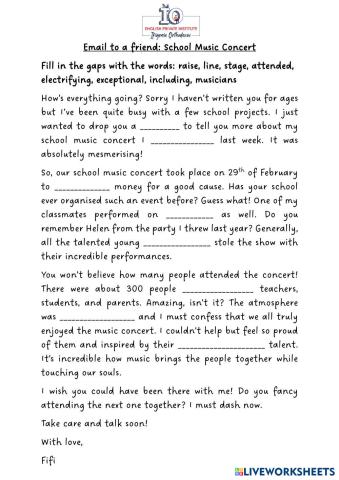 The
10
ENGLISH PRIVATE INSTITUTE
Email to a friend: School Music Concert
Fill in the gaps with the words: raise, line, stage, attended,
electrifying, exceptional, including, musicians
How's everything going? Sorry I haven't written you for ages
but I've been quite busy with a few school projects. I just
wanted to drop you a __________ to tell you more about my
school music concert I ________________ last week. It was
absolutely mesmerising!
So, our school music concert took place on 29th of February
to ______________ money for a good cause. Has your school
ever organised such an event before? Guess what! One of my
classmates performed on ____________ as well. Do you
remember Helen from the party I threw last year? Generally,
all the talented young _________________ stole the show with
their incredible performances.
You won't believe how many people attended the concert!
There were about 300 people __________________ teachers,
students, and parents. Amazing, isn't it? The atmosphere
was ___________________ and I must confess that we all truly
enjoyed the music concert. I couldn't help but feel so proud
of them and inspired by their ______________________ talent.
It's incredible how music brings the people together while
touching our souls.
I wish you could have been there with me! Do you fancy
attending the next one together? I must dash now.
Take care and talk soon!
With love,
Fifi
LIVEWORKSHEETS